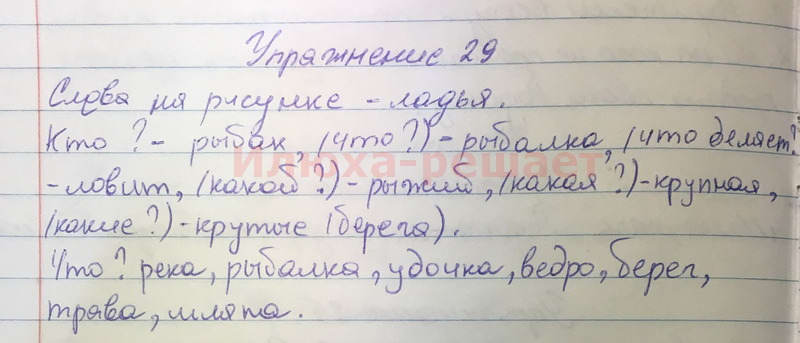 Упражнение 29
Слова на рисунке - ладья.
Кто ? - рыбак, (что ?) - рыбалка, (что делает?)
Илюха-решает
- ловит, (какой ?) - рыжий, (какая ?) - крупная,
(какие ?) - крутые (берега).
Что ? река, рыбалка, удочка, ведро, берег,
трава, шляпа.